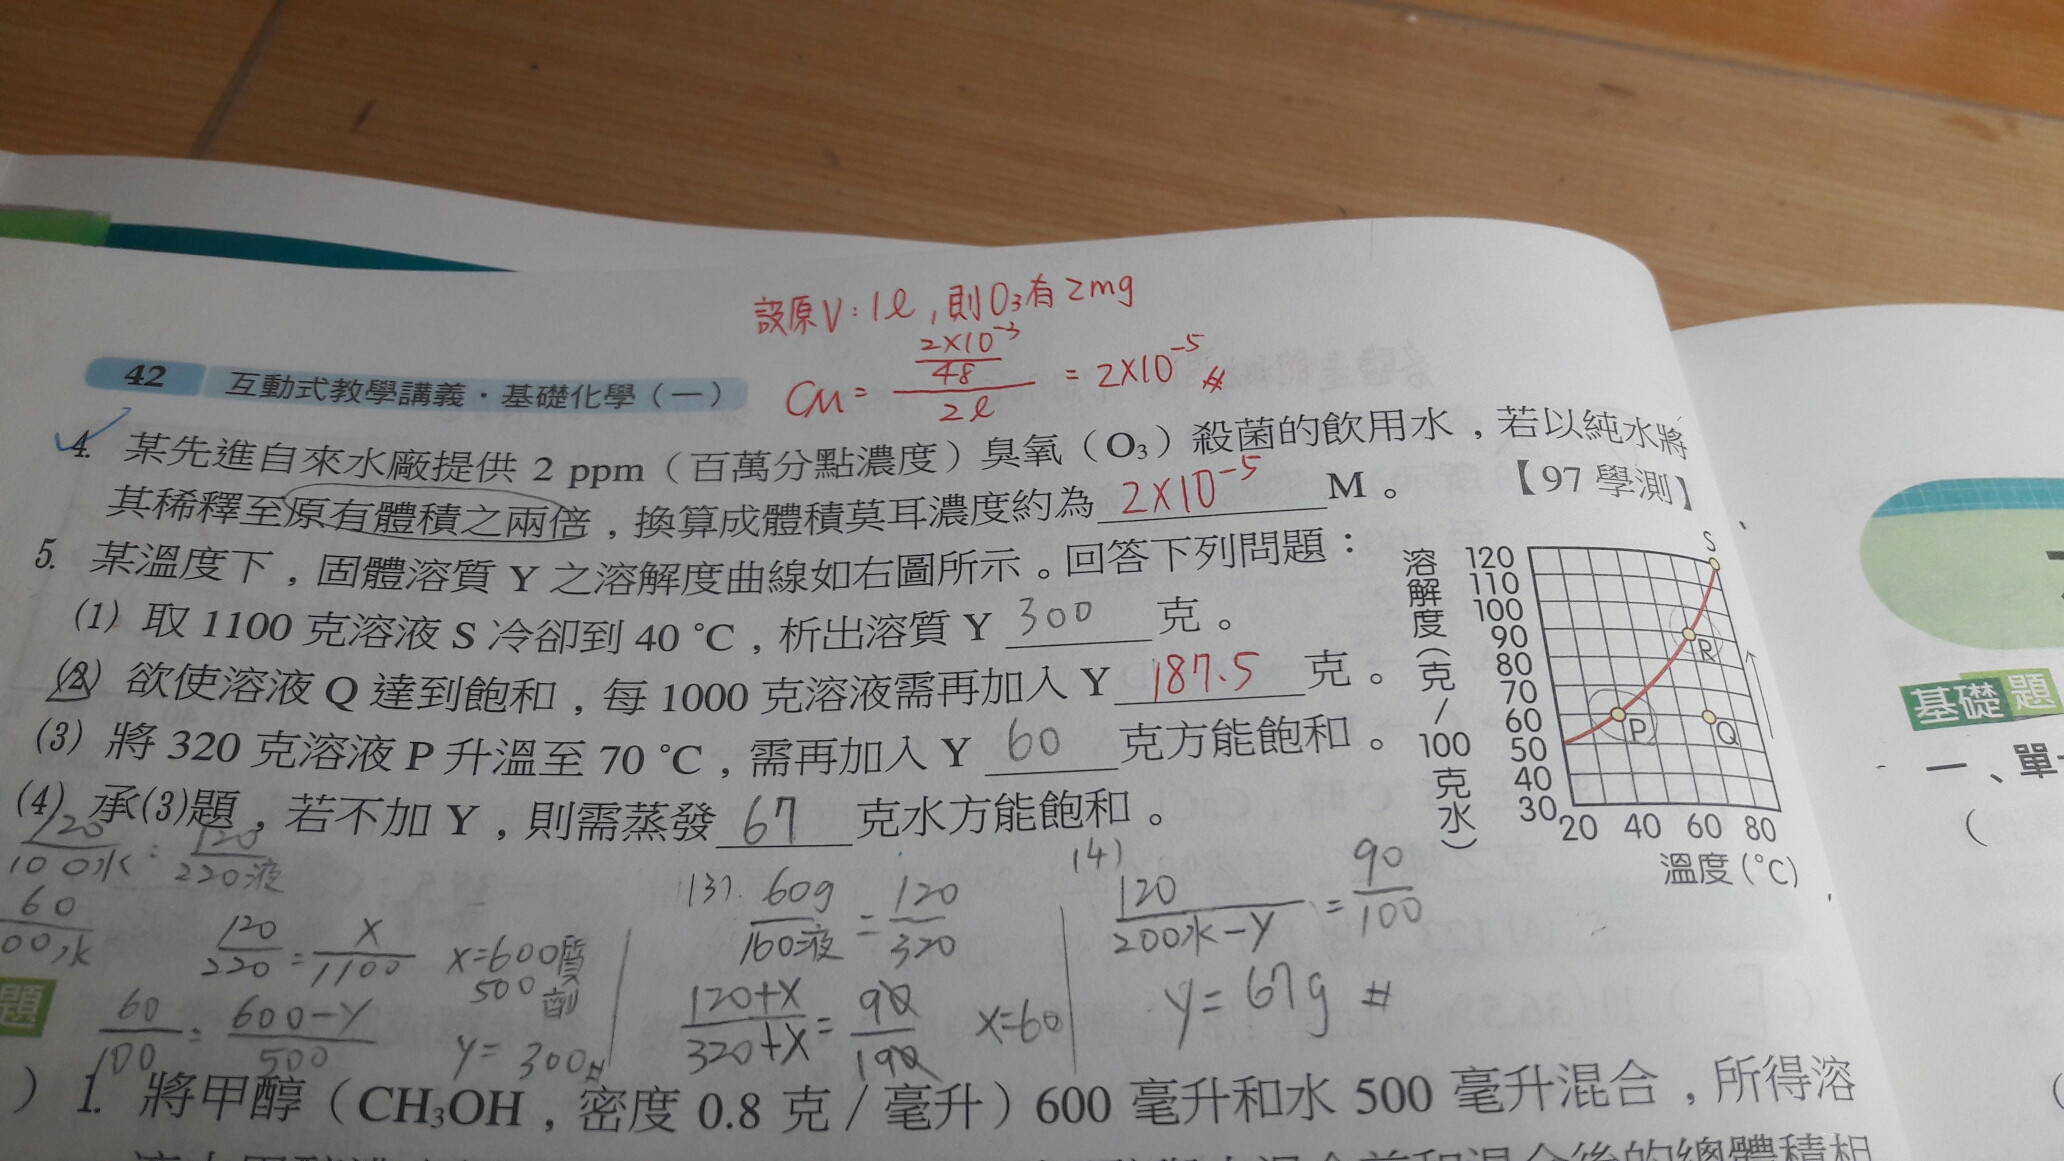 設原V:1ℓ,則O₃有2mg
CM= (2×10⁻³/48)/2ℓ = 2×10⁻⁵ #
42 互動式教學講義・基礎化學(一)
4. 某先進自來水廠提供 2 ppm(百萬分點濃度)臭氧(O₃)殺菌的飲用水,若以純水將
其稀釋至原有體積之兩倍,換算成體積莫耳濃度約為 2×10⁻⁵ M。 【97 學測】
5. 某溫度下,固體溶質 Y 之溶解度曲線如右圖所示。回答下列問題:
(1) 取 1100 克溶液 S 冷卻到 40 °C,析出溶質 Y 300 克。
(2) 欲使溶液 Q 達到飽和,每 1000 克溶液需再加入 Y 187.5 克。
(3) 將 320 克溶液 P 升溫至 70 °C,需再加入 Y 60 克方能飽和。
(4) 承(3)題,若不加 Y,則需蒸發 67 克水方能飽和。
溶解度(克/100克水)
120
110
100
90
80
70
60
50
40
30
20 40 60 80
溫度(°C)
S
R
P
Q
120/100水 : 120/220液
60/00水
120/220 = x/1100 x=600質
500劑
60/100 = 600-y/500 y=300#
(3). 60g/160液 = 120/320
120+x/320+x = 90/190 x=60
(4) 120/200水-y = 90/100
y=67g #
題
) 1. 將甲醇(CH₃OH,密度 0.8 克/毫升)600 毫升和水 500 毫升混合,所得溶
基礎題
一、單
(